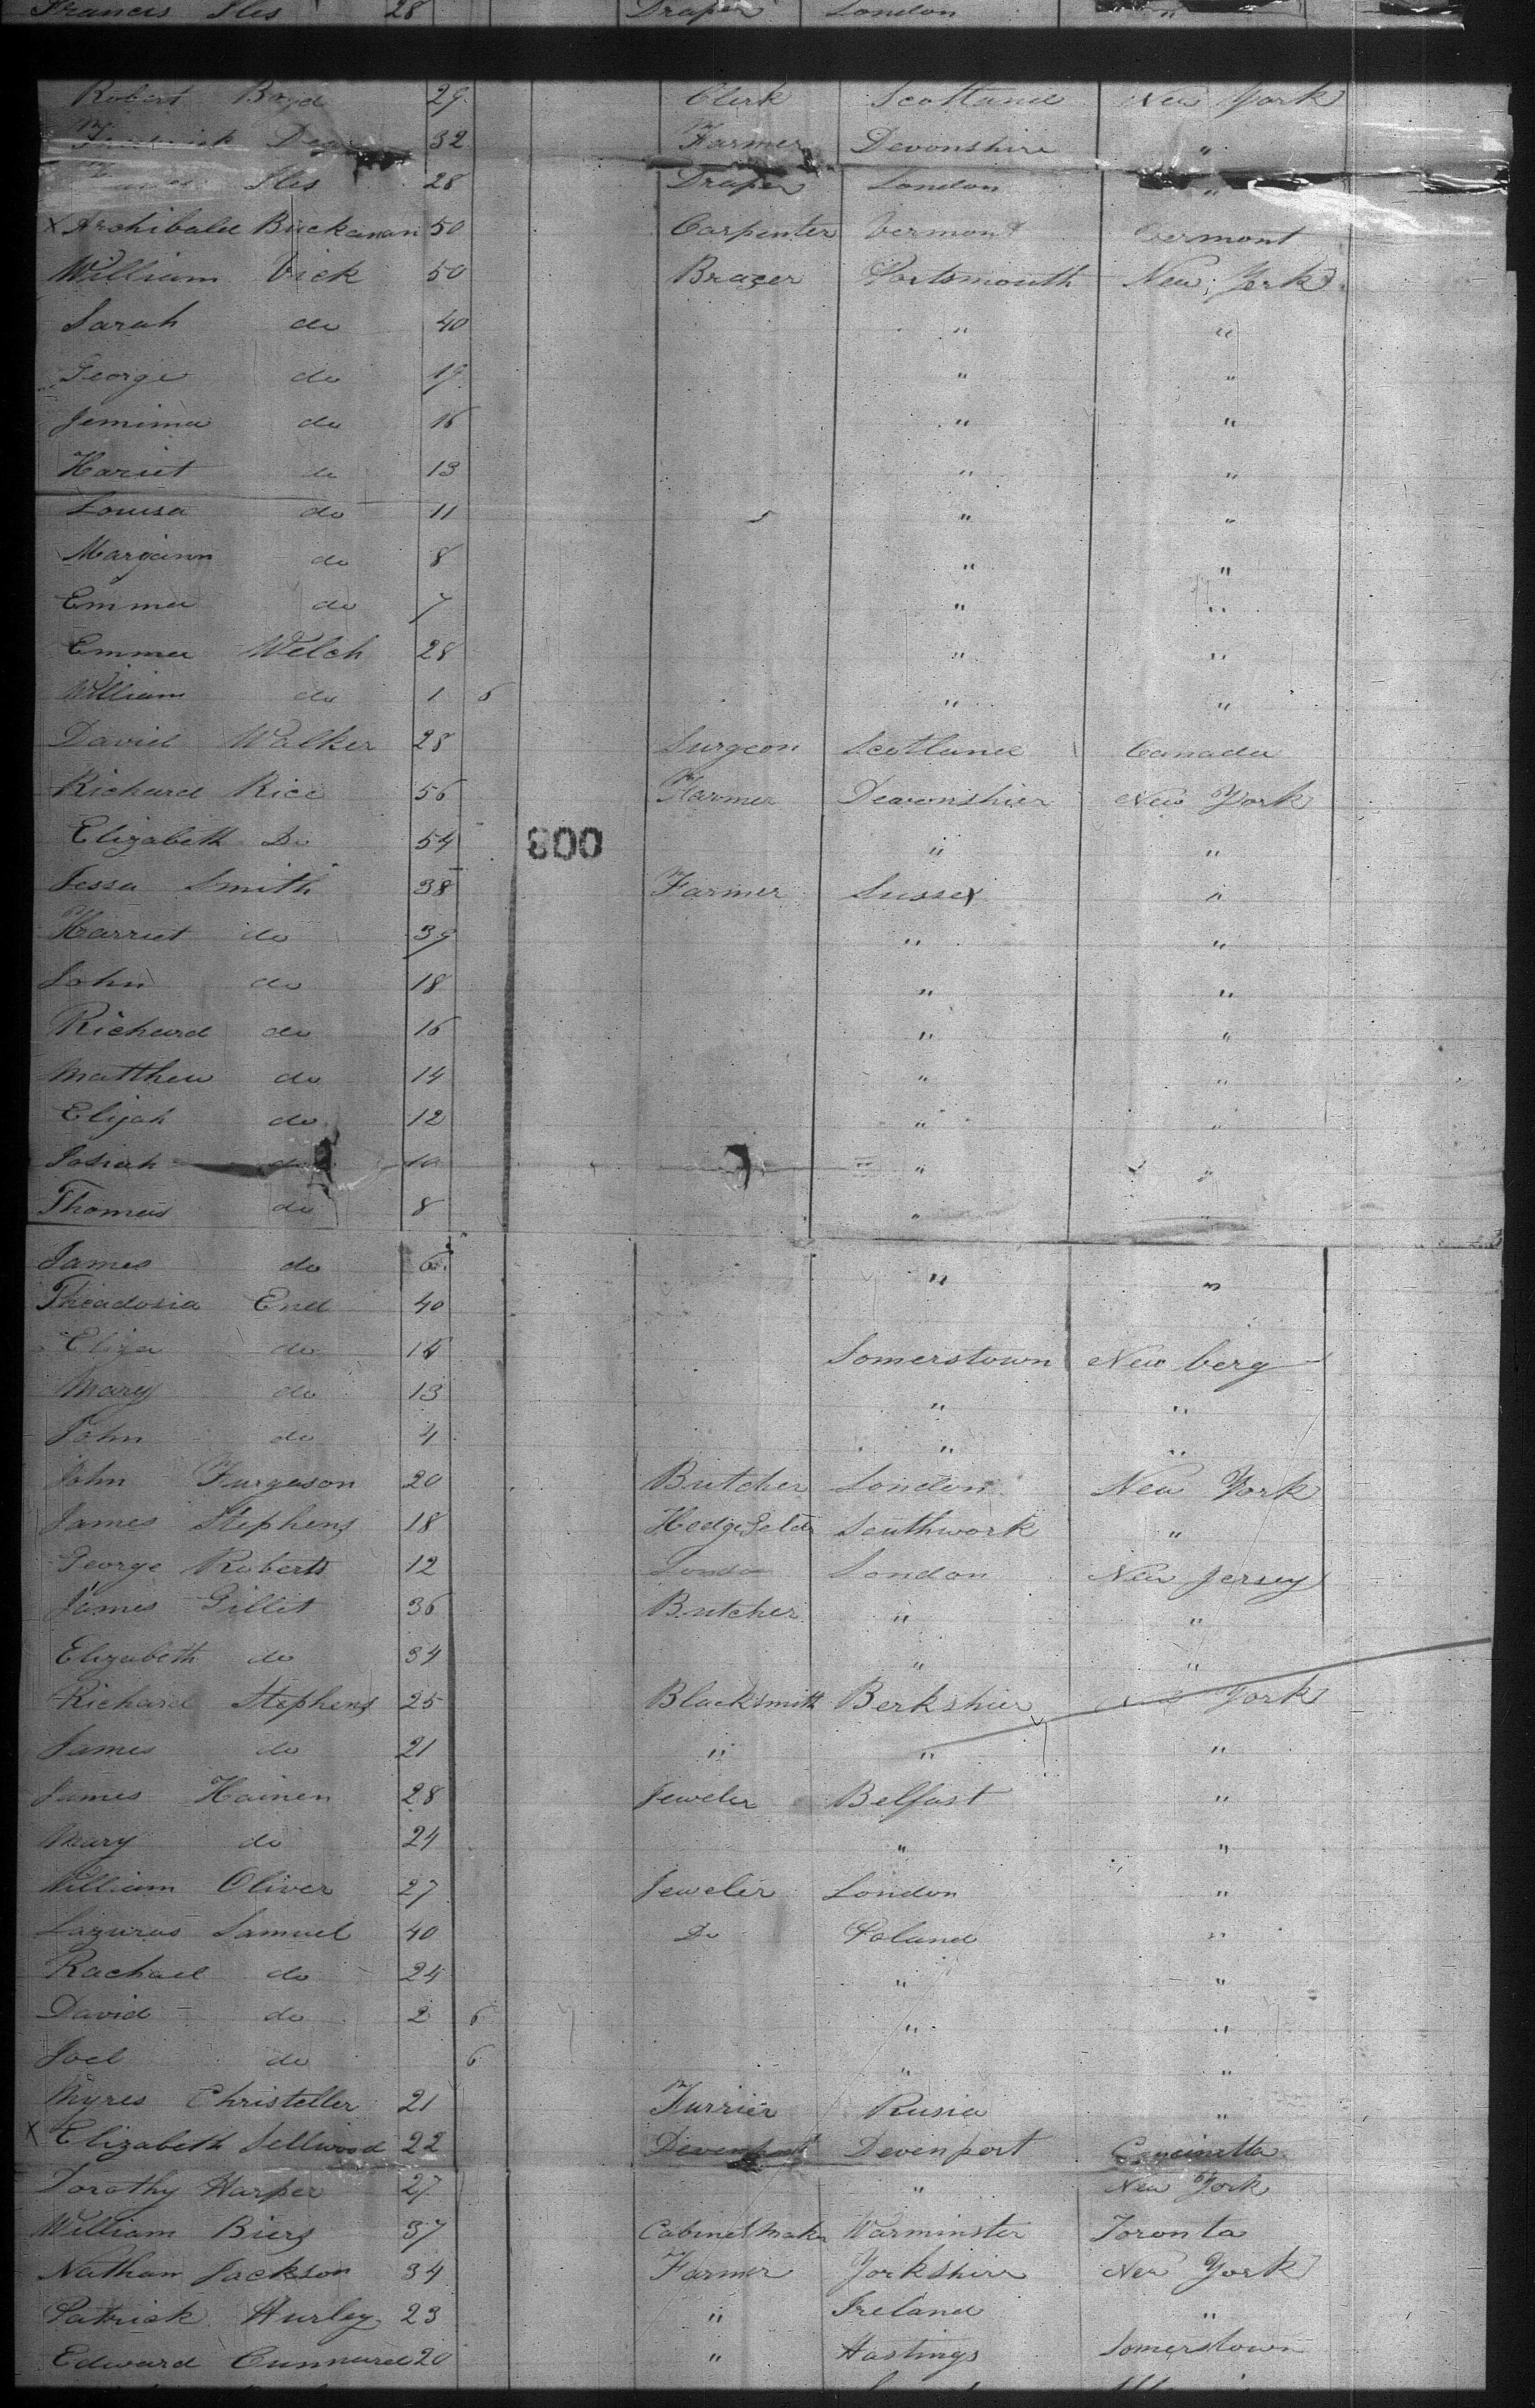 Francis Iles 28 Draper London "
Robert Boyd 29 Clerk Scotland New York
32 Farmer Devonshire "
Iles 28 Draper London "
X Archibald Buckanan 50 Carpenter Vermont Vermont
William Vick 50 Brazer Portsmouth New York
Sarah do 40 " "
George do 19 " "
Jemima do 16 " "
Hariet do 13 " "
Louisa do 11 " "
Margann do 8 " "
Emma do 7 " "
Emma Welch 28 " "
William do 1 6 " "
David Walker 28 Surgeon Scotland Canada
Richard Rice 56 Farmer Deavonshier New York
Elizabeth Do 54 " "
300
Jessa Smith 38 Farmer Sussex "
Harriet do 39 " "
John do 18 " "
Richard do 16 " "
Matthew do 14 " "
Elijah do 12 " "
Josiah do 10 " "
Thomas do 8 " "
James do 6 " "
Theadosia End 40
Eliza do Somerstown New berg
Mary do 13 " "
John do 4 " "
John Furgason 20 Butcher London New York
James Stephens 18 Southwork "
George Roberts 12 London New Jersey
James Gillit 36 Butcher " "
Elizabeth do 34 " "
Richard Stephens 25 Blacksmith Berkshier York
James do 21 " " "
James Hainen 28 Jeweler Belfast "
Mary do 24 " "
William Oliver 27 Jeweler London "
Lazurus Samuel 40 Do Poland "
Rachael do 24 " "
David do 2 6 " "
Joel do 6 " "
Myres Christeller 21 Furrier Rusia "
X Elizabeth Sellwood 22 Devenport Cencinatta
Dorothy Harper 27 " New York
William Biers 37 Cabinet Maker Warminster Toronta
Nathan Jackson 34 Farmer Yorkshire New York
Patrick Hurley 23 " Ireland "
Edward Cunnured 20 " Hastings Somerstown